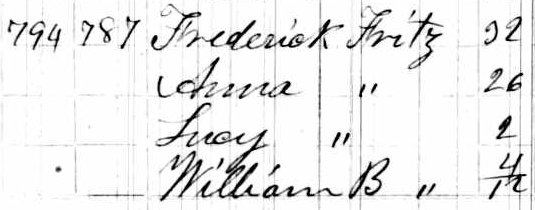 794 787 Frederick Fritz 32
Anna " 26
Lucy " 2
William B " 4/12